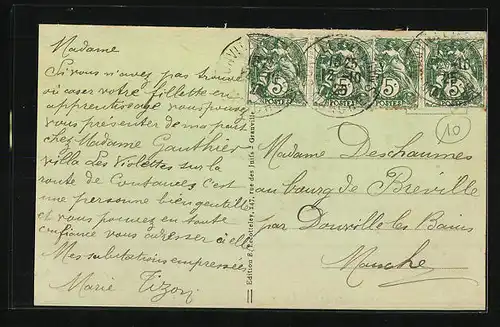 Madame
Si vous n'avez pas trouvé
où caser votre fillette en
apprentissage vous pouvez
vous présenter de ma part
chez Madame Gauthier
ville des Violettes sur la
route de Coutances c'est
une personne bien gentille
et vous pouvez en toute
confiance vous adresser à elle
Mes salutations empressées
Marie Tizon
Edition 247, rue des Juifs à Granville
5 5 5 5
POSTES POSTES POSTES POSTES
10
Madame Deschaumes
au bourg de Bréville
par Donville les Bains
Manche